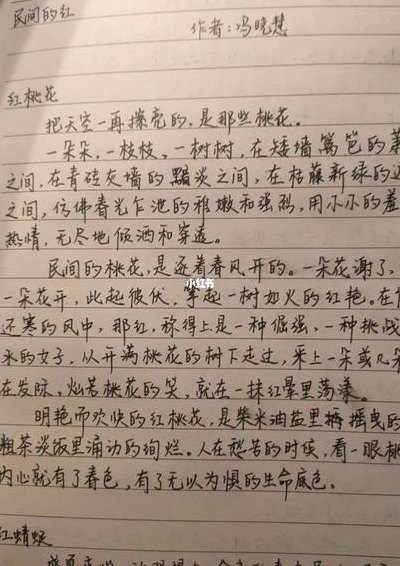 民间的红
作者:冯晓慧
红桃花
把天空一再擦亮的,是那些桃花。
一朵朵,一枝枝、一树树,在矮墙篱笆的
之间,在青砖灰墙的黯淡之间,在枯藤新绿的
之间,仿佛春光乍泄的稚嫩和强烈,用小小的羞
热情,无尽地倾洒和穿透。
民间的桃花,是迎着春风开的。一朵花谢了,
一朵花开,此起彼伏,擎起一树如火的红艳。在
还寒的风中,那红,称得上是一种倔强,一种挑战
水的女子,从开满桃花的树下走过,采上一朵或几朵
在发际,灿若桃花的笑,就在一抹红晕里荡漾。
明艳而欢快的红桃花,是柴米油盐里摇曳的
粗茶淡饭里涌动的绚烂。人在愁苦的时候,看一眼桃
内心就有了春色,有了无以为惧的生命底色。
红蜻蜓
小红书